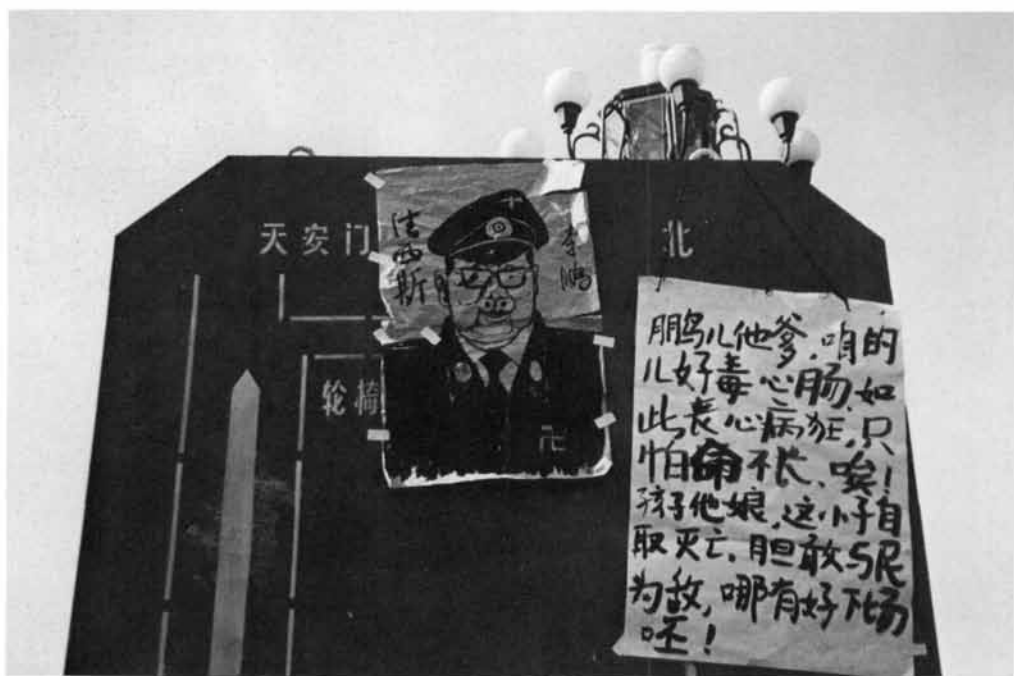 天安门
北
轮椅
法西斯
李鹏
鹏儿他爹,咱的
儿好毒心肠,如
此丧心病狂,只
怕不长,唉!
孩子他娘,这小子自
取灭亡,胆敢与民
为敌,哪有好下场
呸!